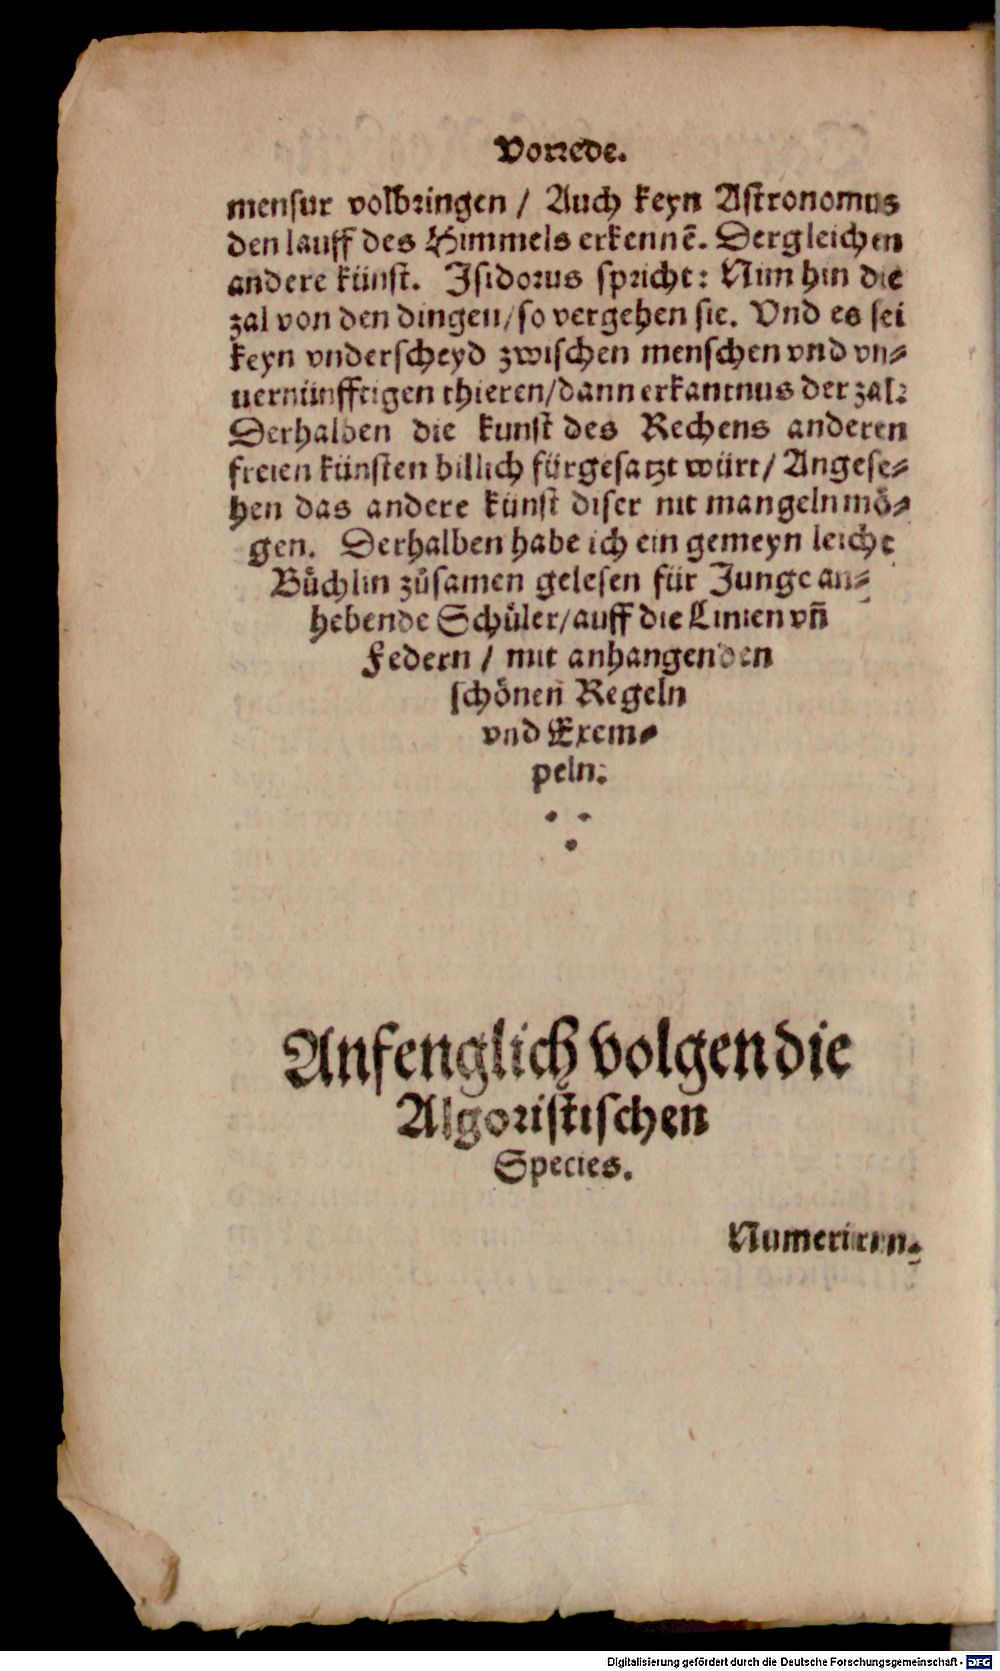 Vorrede.
mensur volbringen / Auch keyn Astronomus
den lauff des Himmels erkennẽ. Dergleichen
andere künst. Isidorus spricht: Nim hin die
zal von den dingen/so vergehen sie. Vnd es sei
keyn vnderscheyd zwischen menschen vnd vn⸗
uernünfftigen thieren/dann erkantnus der zal:
Derhalben die kunst des Rechens anderen
freien künsten billich fürgesatzt würt/ Angese⸗
hen das andere künst diser nit mangeln mö⸗
gen. Derhalben habe ich ein gemeyn leicht
Bůchlin zůsamen gelesen für Junge an⸗
hebende Schůler/auff die Linien vñ
Federn / mit anhangenden
schönen Regeln
vnd Exem⸗
peln.
Anfenglich volgen die
Algoristischen
Species.
Numeriren.
Digitalisierung gefördert durch die Deutsche Forschungsgemeinschaft - DFG